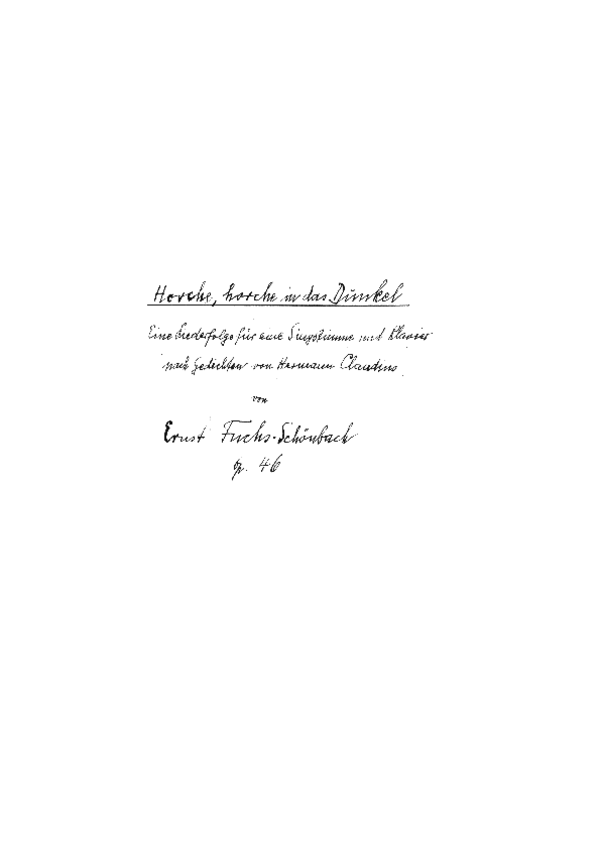 Horche, horche in das Dunkel
Eine Liederfolge für eine Singstimme und Klavier
nach Gedichten von Hermann Claudius
von
Ernst Fuchs-Schönbach
op. 46